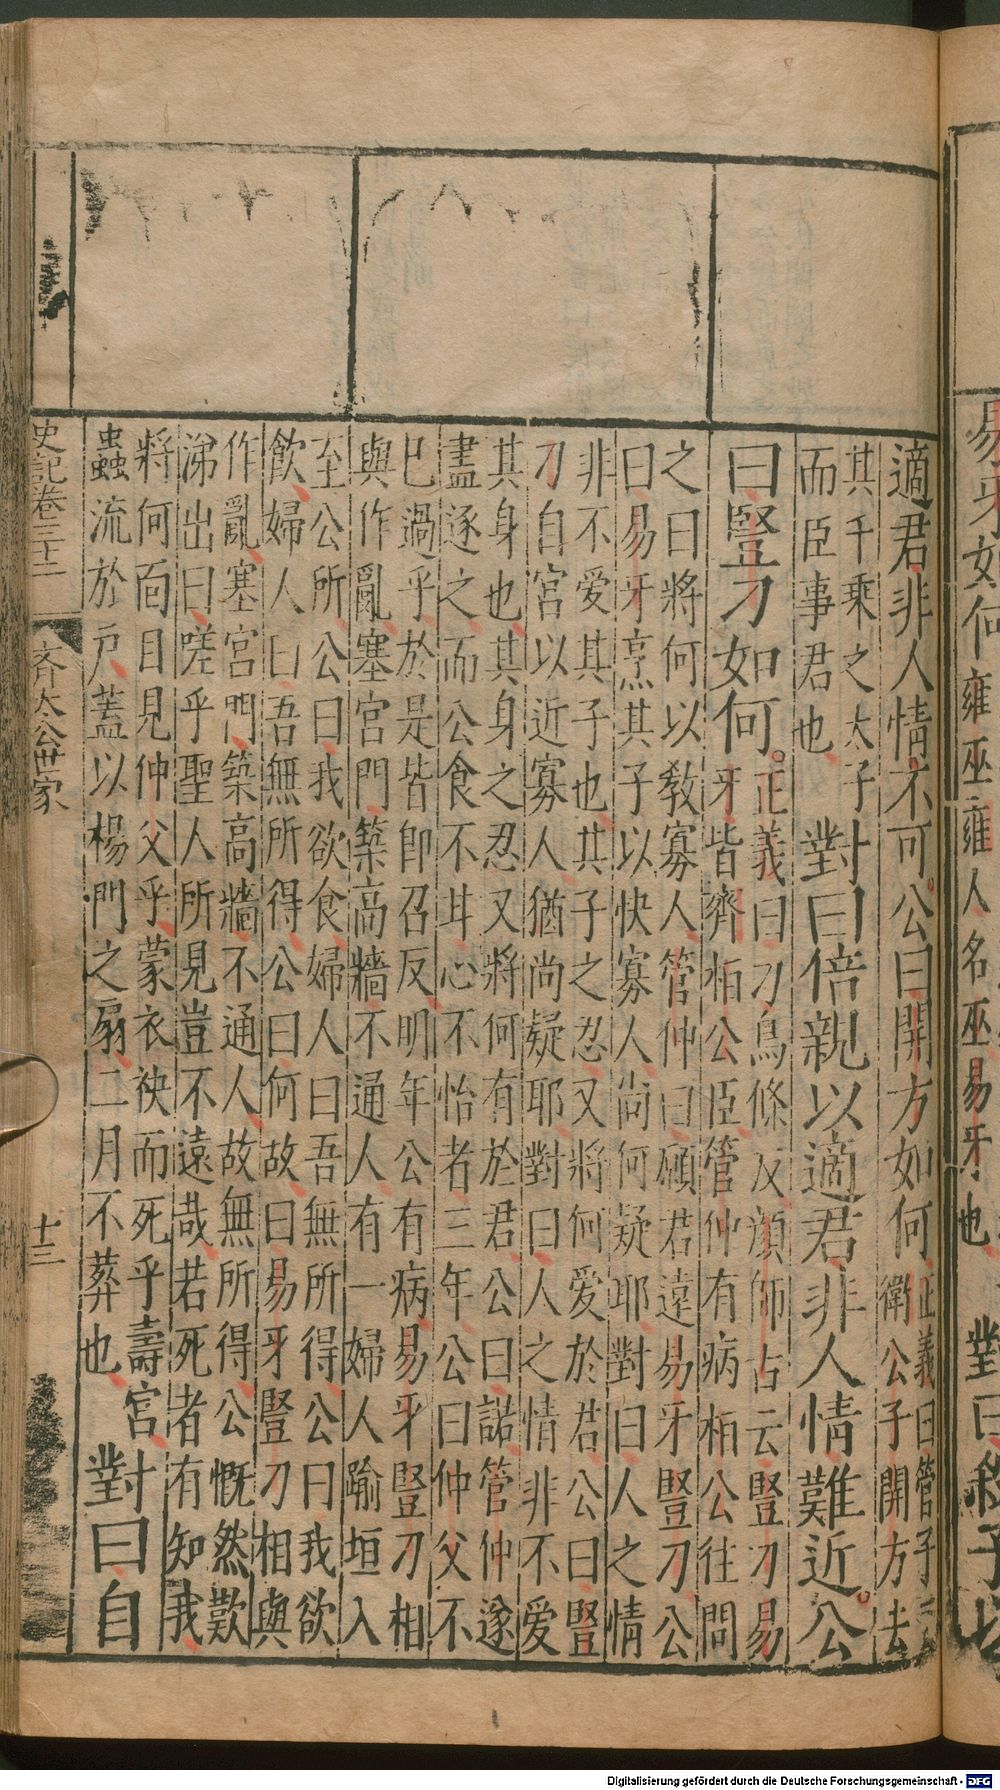 易牙如何雍巫雍人名巫易牙也對曰殺子以
適君非人情不可。公曰開方如何
正義曰管子云
衛公子開方去
其千乘之太子
而臣事君也
對曰倍親以適君非人情難近。公
曰豎刁如何。
正義曰刁鳥條反顔師古云豎刁易
牙皆齊桓公臣管仲有病桓公往問
之曰將何以敎寡人管仲曰願君遠易牙豎刁公
曰易牙烹其子以快寡人尚何疑耶對曰人之情
非不愛其子也其子之忍又將何愛於君公曰豎
刁自宮以近寡人猶尚疑耶對曰人之情非不愛
其身也其身之忍又將何有於君公曰諾管仲遂
盡逐之而公食不甘心不怡者三年公曰仲父不
已過乎於是皆卽召反明年公有病易牙豎刁相
與作亂塞宮門築高牆不通人有一婦人踰垣入
至公所公曰我欲食婦人曰吾無所得公曰我欲
飲婦人曰吾無所得公曰何故曰易牙豎刁相與
作亂塞宮門築高牆不通人故無所得公慨然歎
涕出曰嗟乎聖人所見豈不遠哉若死者有知我
將何面目見仲父乎蒙衣袂而死乎壽宮
蟲流於戶蓋以楊門之扇二月不葬也
對曰自
史記卷三十二
齊太公世家
十三
Digitalisierung gefördert durch die Deutsche Forschungsgemeinschaft - DFG